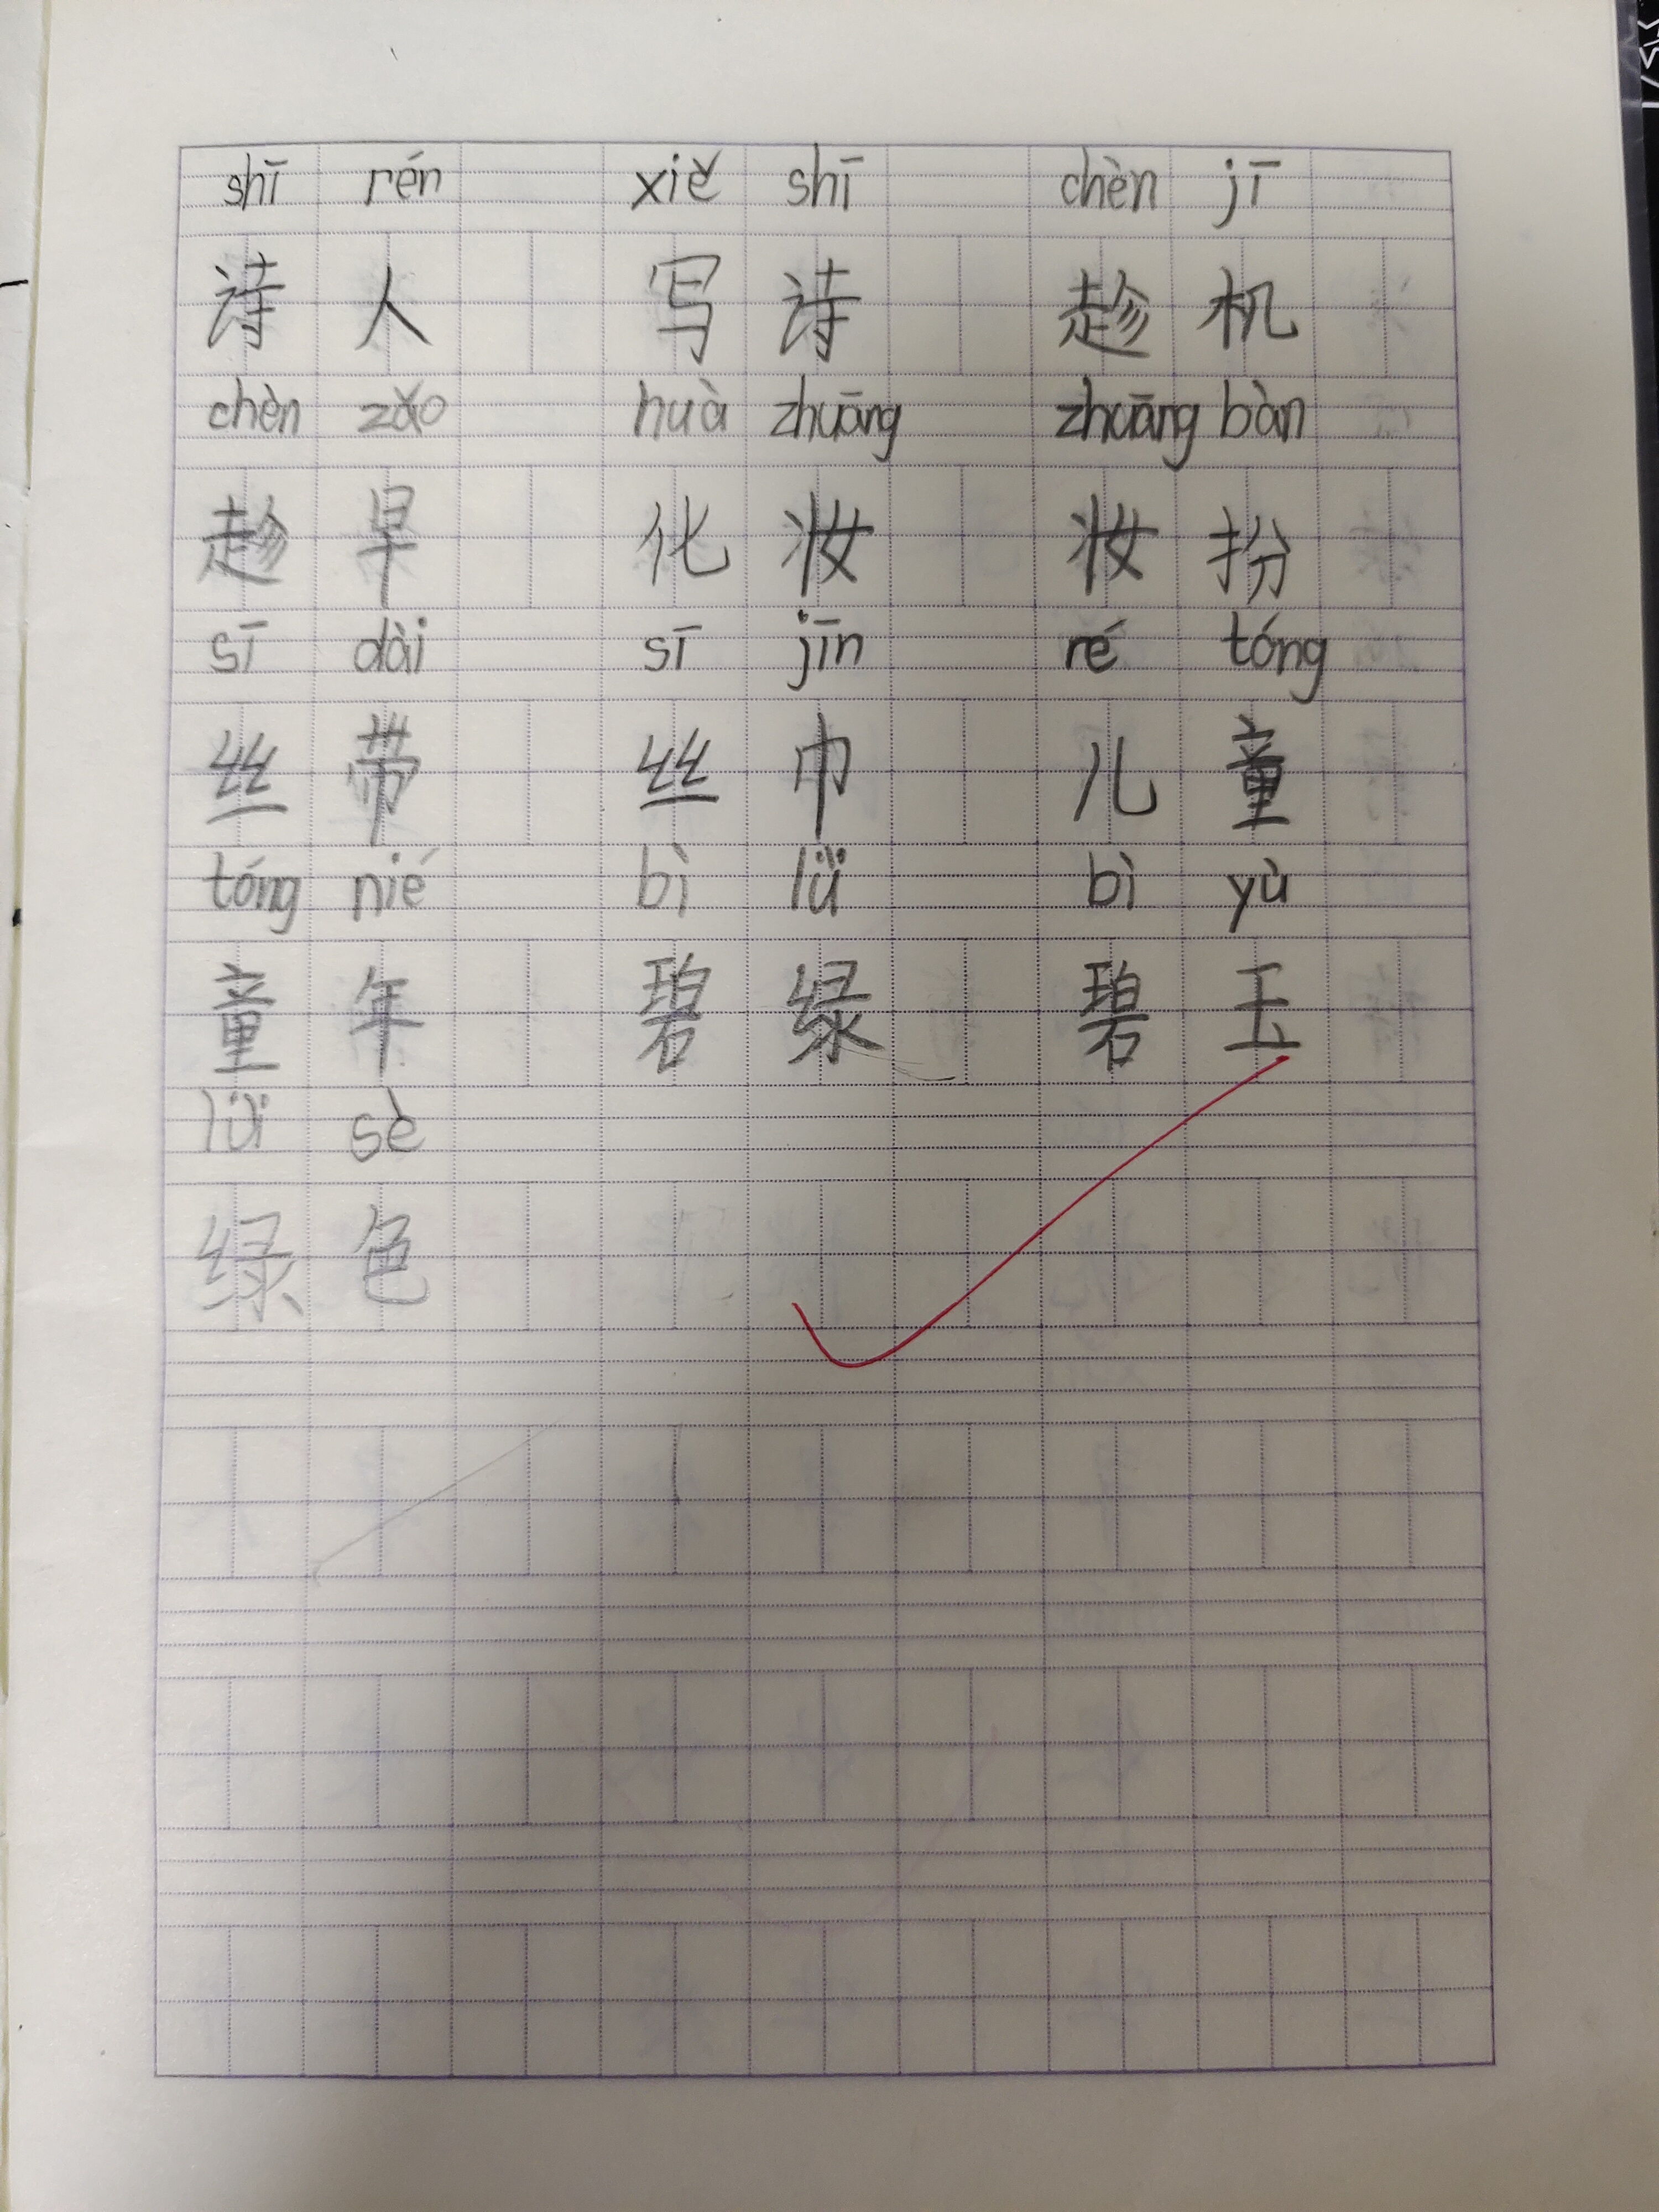 shī rén xiě shī chèn jī
诗人 写诗 趁机
chèn zǎo huà zhuāng zhuāng bàn
趁早 化妆 妆扮
sī dài sī jīn ré tóng
丝带 丝巾 儿童
tóng nié bì lǜ bì yù
童年 碧绿 碧玉
lǜ sè
绿色